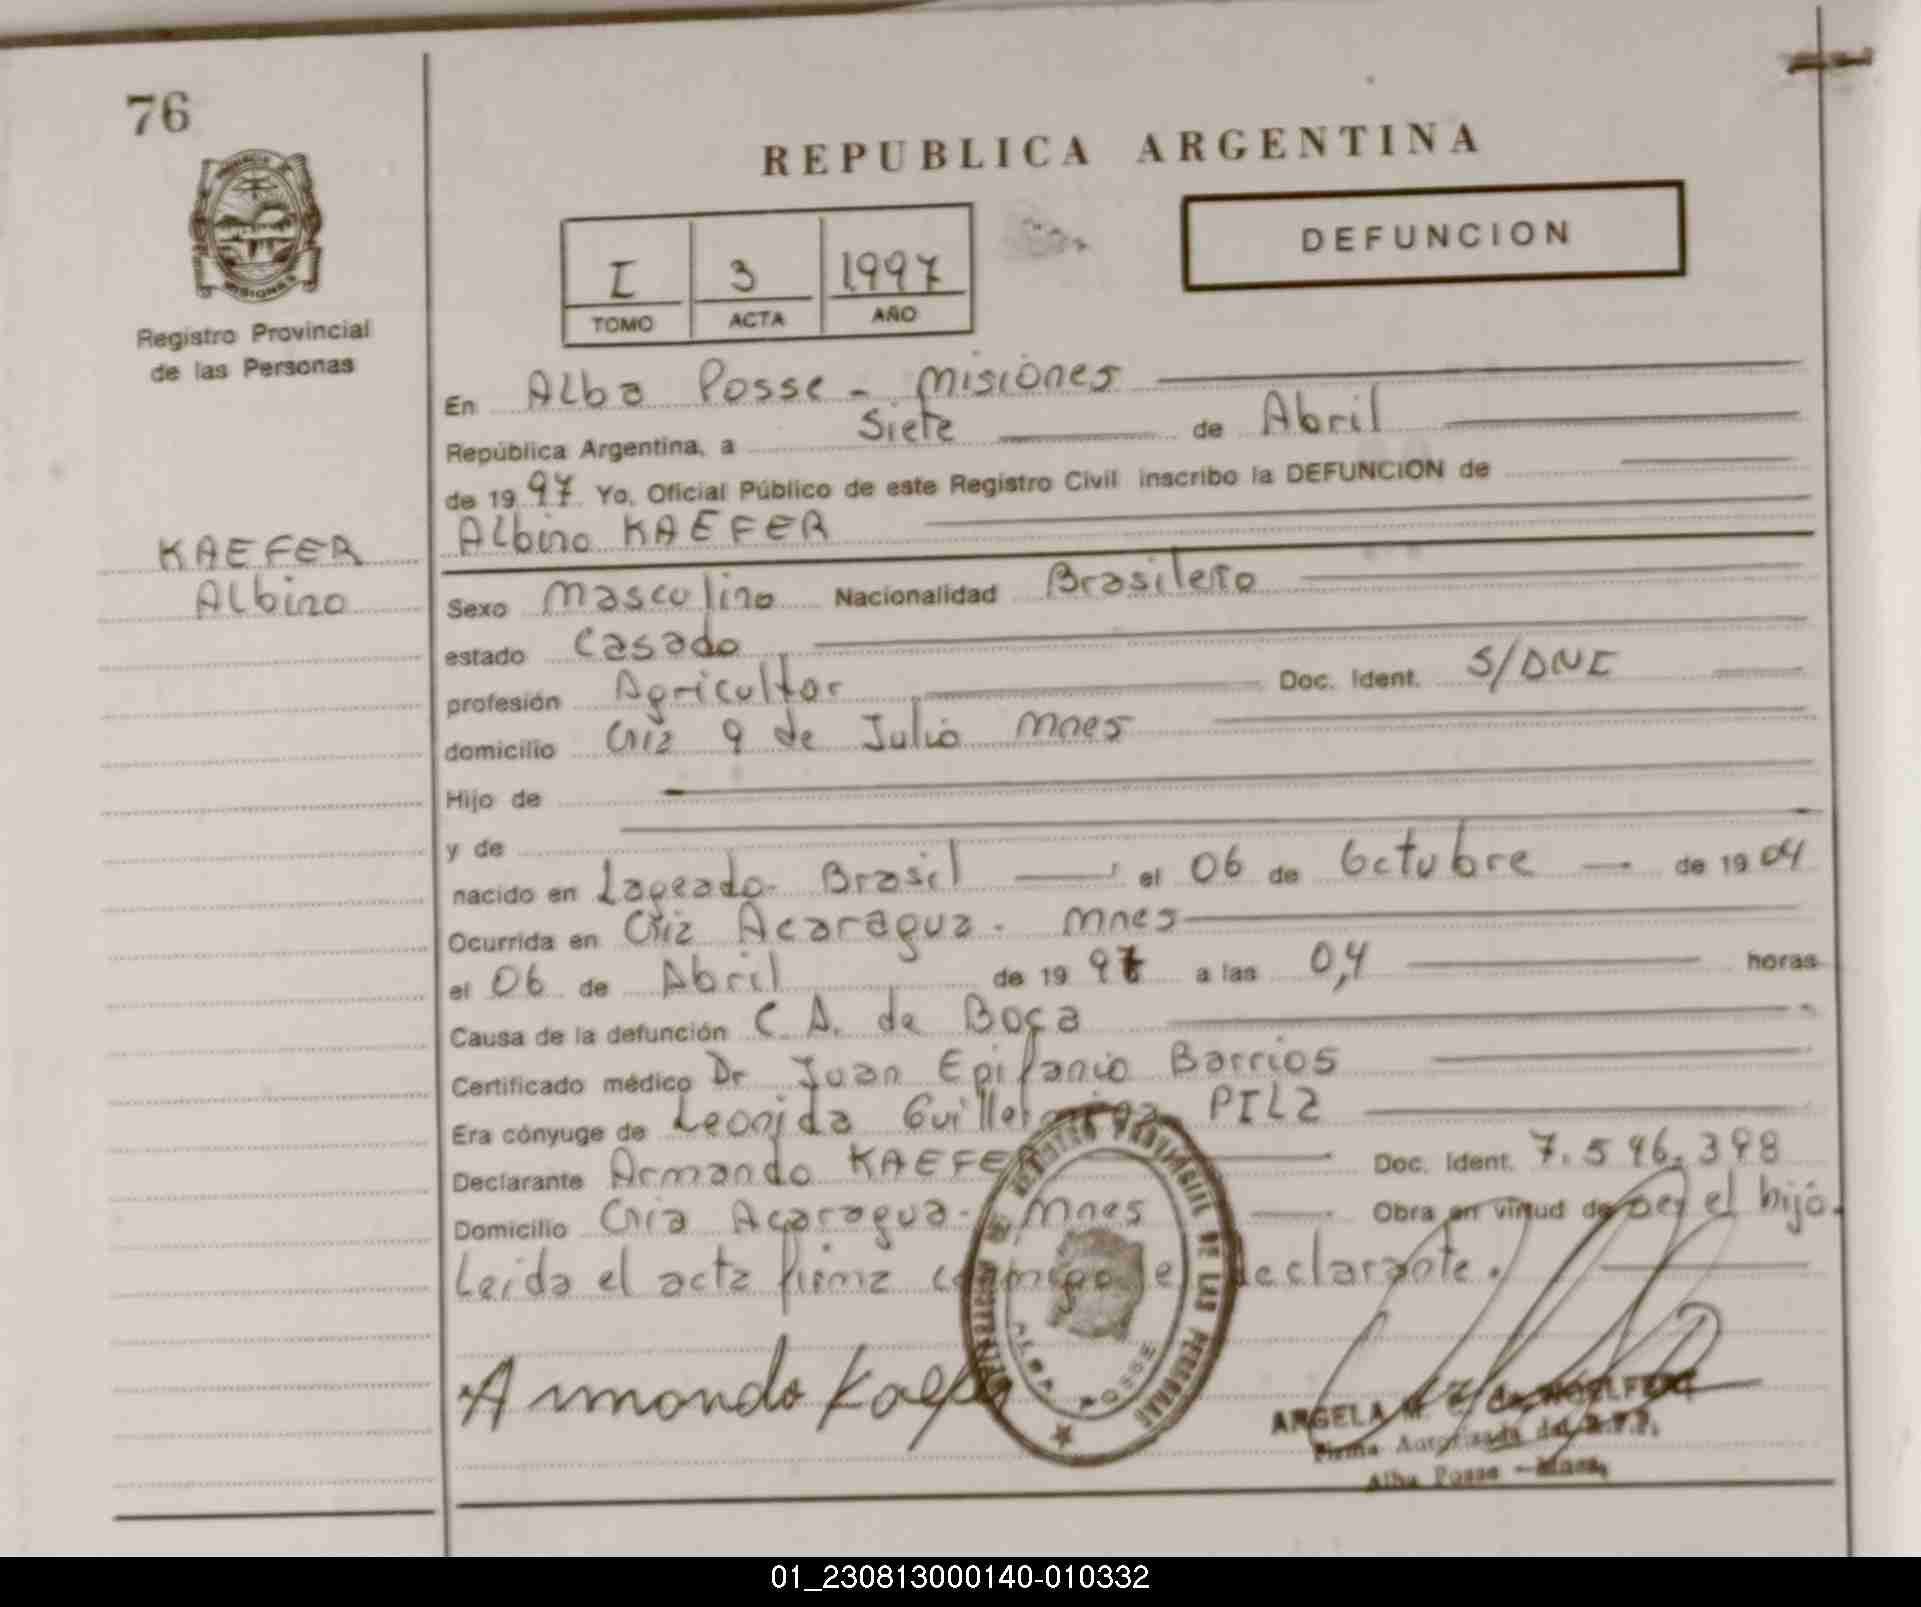 76
REPUBLICA ARGENTINA
DEFUNCION
I 3 1997
TOMO ACTA AÑO
Registro Provincial
de las Personas
En Alba Posse - Misiones
República Argentina, a Siete de Abril
de 1997 Yo, Oficial Público de este Registro Civil inscribo la DEFUNCION de
Albino KAEFER
KAEFER
Albino
Sexo Masculino Nacionalidad Brasileño
estado Casado
profesión Agricultor Doc. Ident. S/DNI
domicilio 9 de Julio Mnes
Hijo de
y de
nacido en Lageado - Brasil el 06 de Octubre de 1904
Ocurrida en Acaragua - Mnes
el 06 de Abril de 1997 a las 0,4 horas
Causa de la defunción C A. de Boca
Certificado médico Dr Juan Epifanio Barrios
Era cónyuge de Leonida Guillermina PILZ
Declarante Armando KAEFER Doc. Ident. 7.546.398
Domicilio Cnia Acaragua - Mnes Obra en virtud de ser el hijo.
Leida el acta firma conmigo el declarante.
Armando Kaefer
REGISTRO PROVINCIAL DE LAS PERSONAS
ALBA POSSE
ANGELA M.
Firma Autorizada del R.P.P.
Alba Posse - Mnes.
01_230813000140-010332